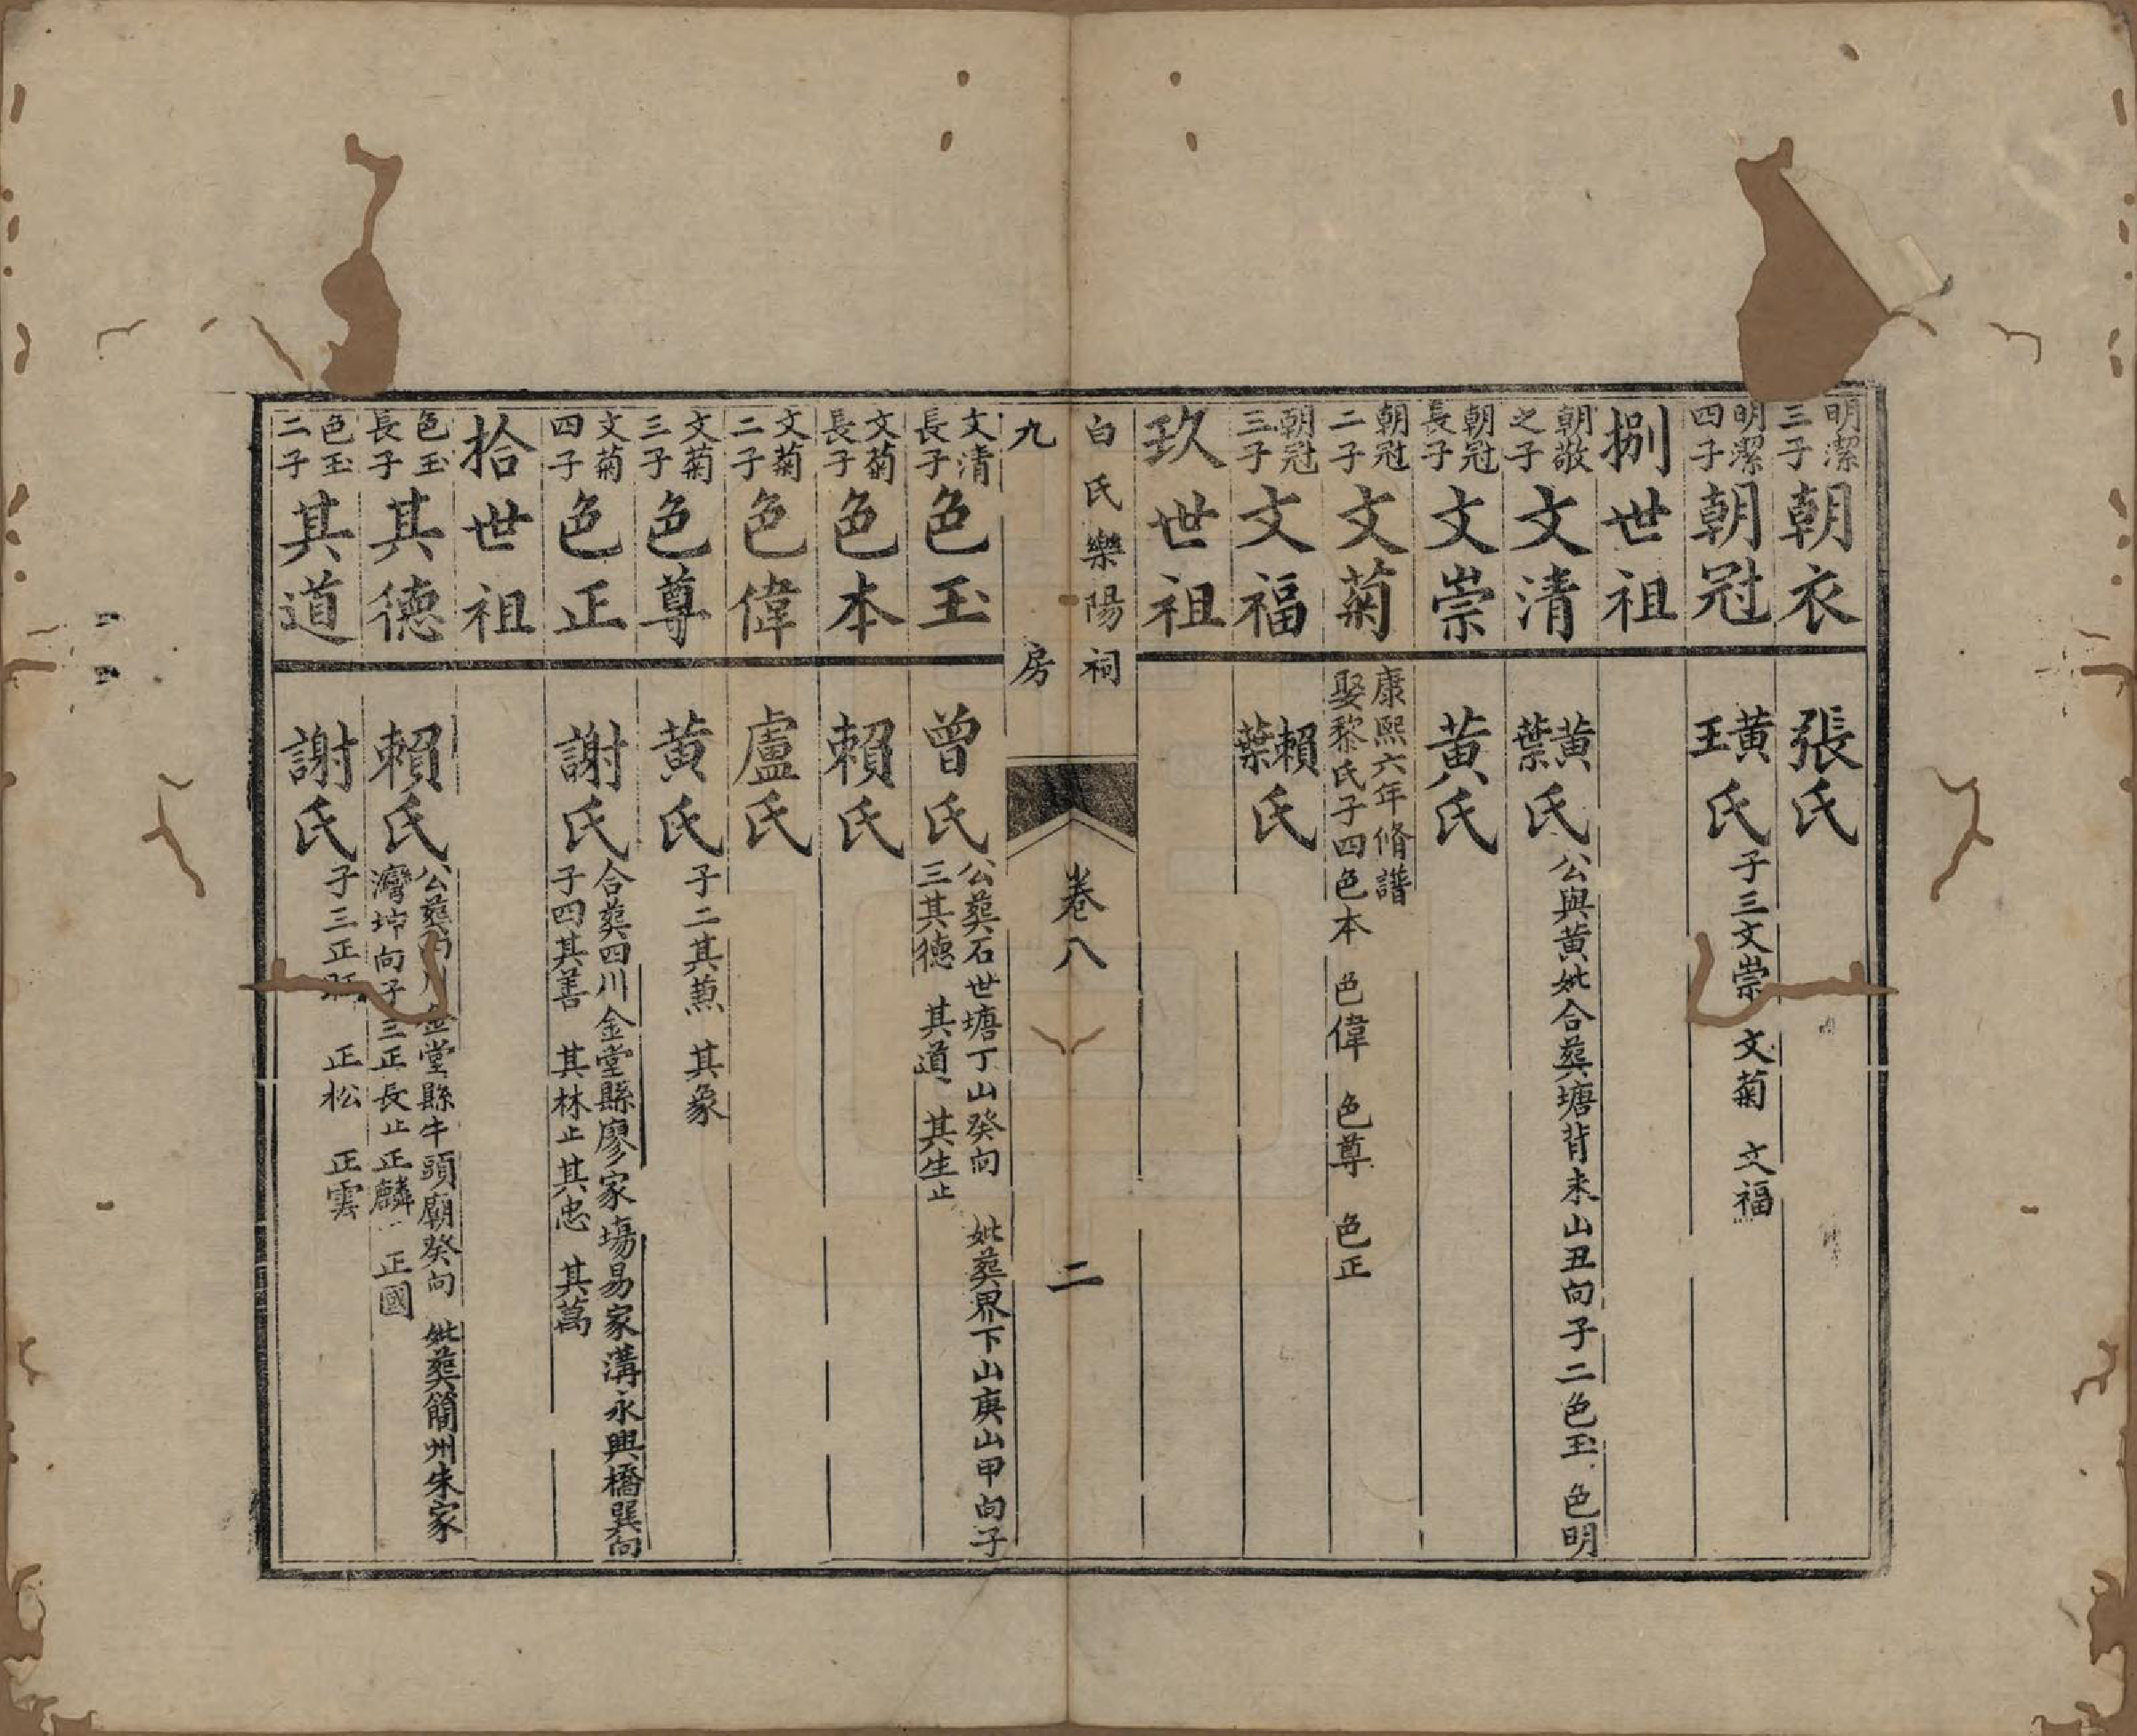 明潔三子 朝衣 張氏
明潔四子 朝冠 黄王氏 子三文崇 文菊 文福
捌世祖
朝敬之子 文清 黄葉氏 公與黄妣合葬塘背未山丑向子二色玉 色明
朝冠長子 文崇 黄氏
朝冠二子 文菊 康熙六年脩譜娶黎氏子四色本 色偉 色尊 色正
朝冠三子 文福 賴葉氏
玖世祖
白氏樂陽祠
九房
卷八
二
文清長子 色玉 曾氏 公葬石世塘丁山癸向 妣葬界下山庚山甲向子三其德 其道 其生止
文菊長子 色本 賴氏
文菊二子 色偉 盧氏
文菊三子 色尊 黄氏 子二其蒸 其象
文菊四子 色正 謝氏 合葬四川金堂縣廖家塲易家溝永興橋巽向子四其善 其林止其忠 其萬
拾世祖
色玉長子 其德 賴氏 公葬川金堂縣牛頭廟癸向 妣葬簡州朱家灣坤向子三正長止正麟 正國
色玉二子 其道 謝氏 子三正 正松 正雲